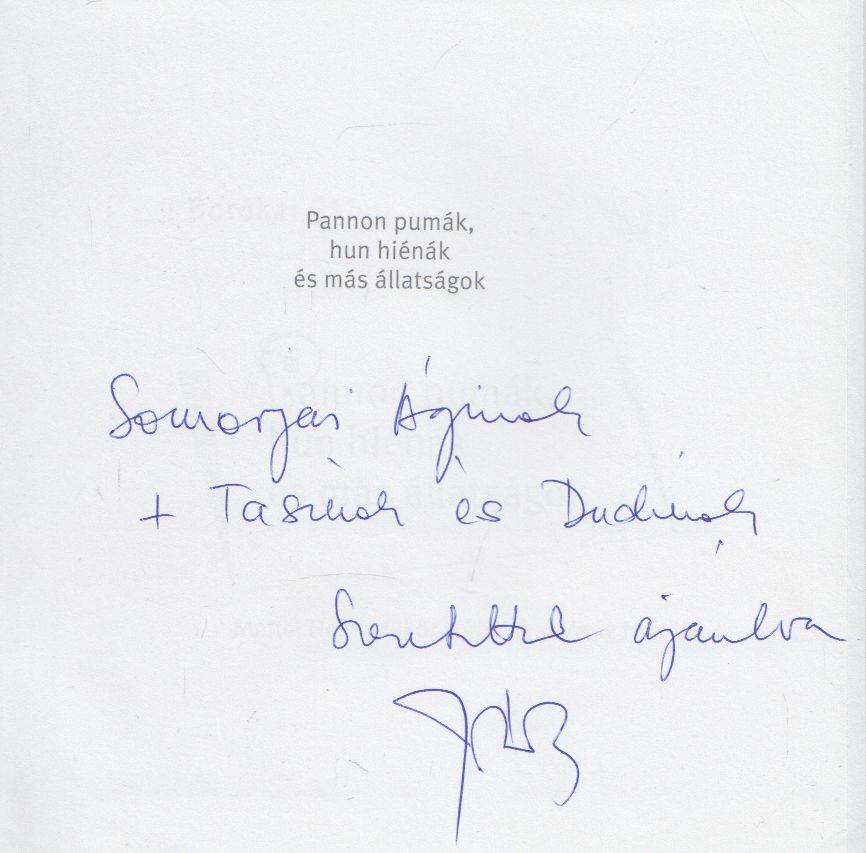 Pannon pumák,
hun hiénák
és más állatságok
Somorjai Áginak
+ Tasinak és Dudinak
Szeretettel ajánlva